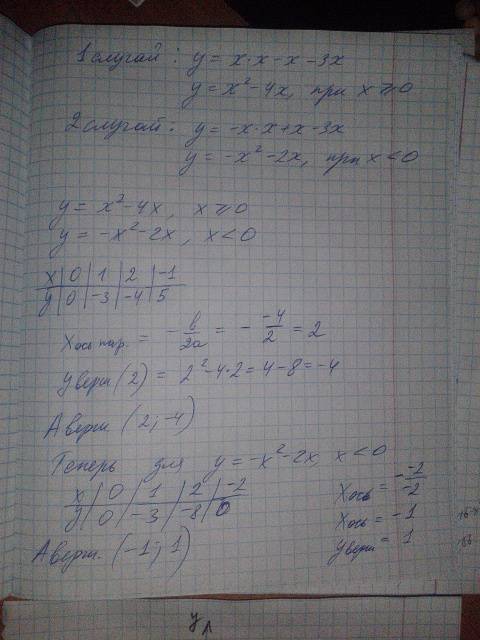 1 случай: y = x·x - x - 3x
y = x² - 4x, при x ⩾ 0
2 случай: y = -x·x + x - 3x
y = -x² - 2x, при x < 0
y = x² - 4x, x ⩾ 0
y = -x² - 2x, x < 0
x | 0 | 1 | 2 | -1
y | 0 | -3 | -4 | 5
x ось пар. = - b/2a = - -4/2 = 2
y верш (2) = 2² - 4·2 = 4 - 8 = -4
A верш (2; -4)
Теперь для y = -x² - 2x, x < 0
x | 0 | 1 | 2 | -2
y | 0 | -3 | -8 | 0
x ось = - -2/-2
x ось = -1
y верш = 1
A верш. (-1; 1)
y